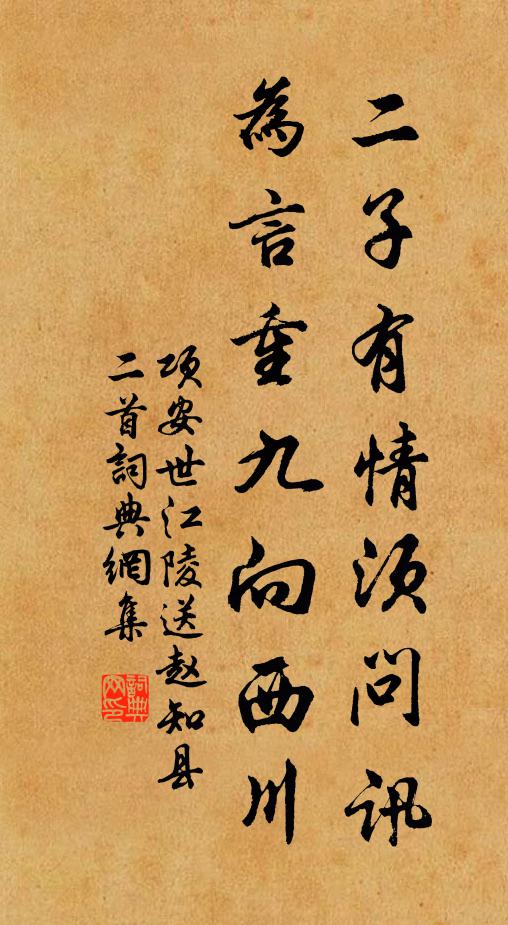 二子有情须問訊
為言重九向西川
项安世江陵送赵知县
二首詞典網集
詞典网印